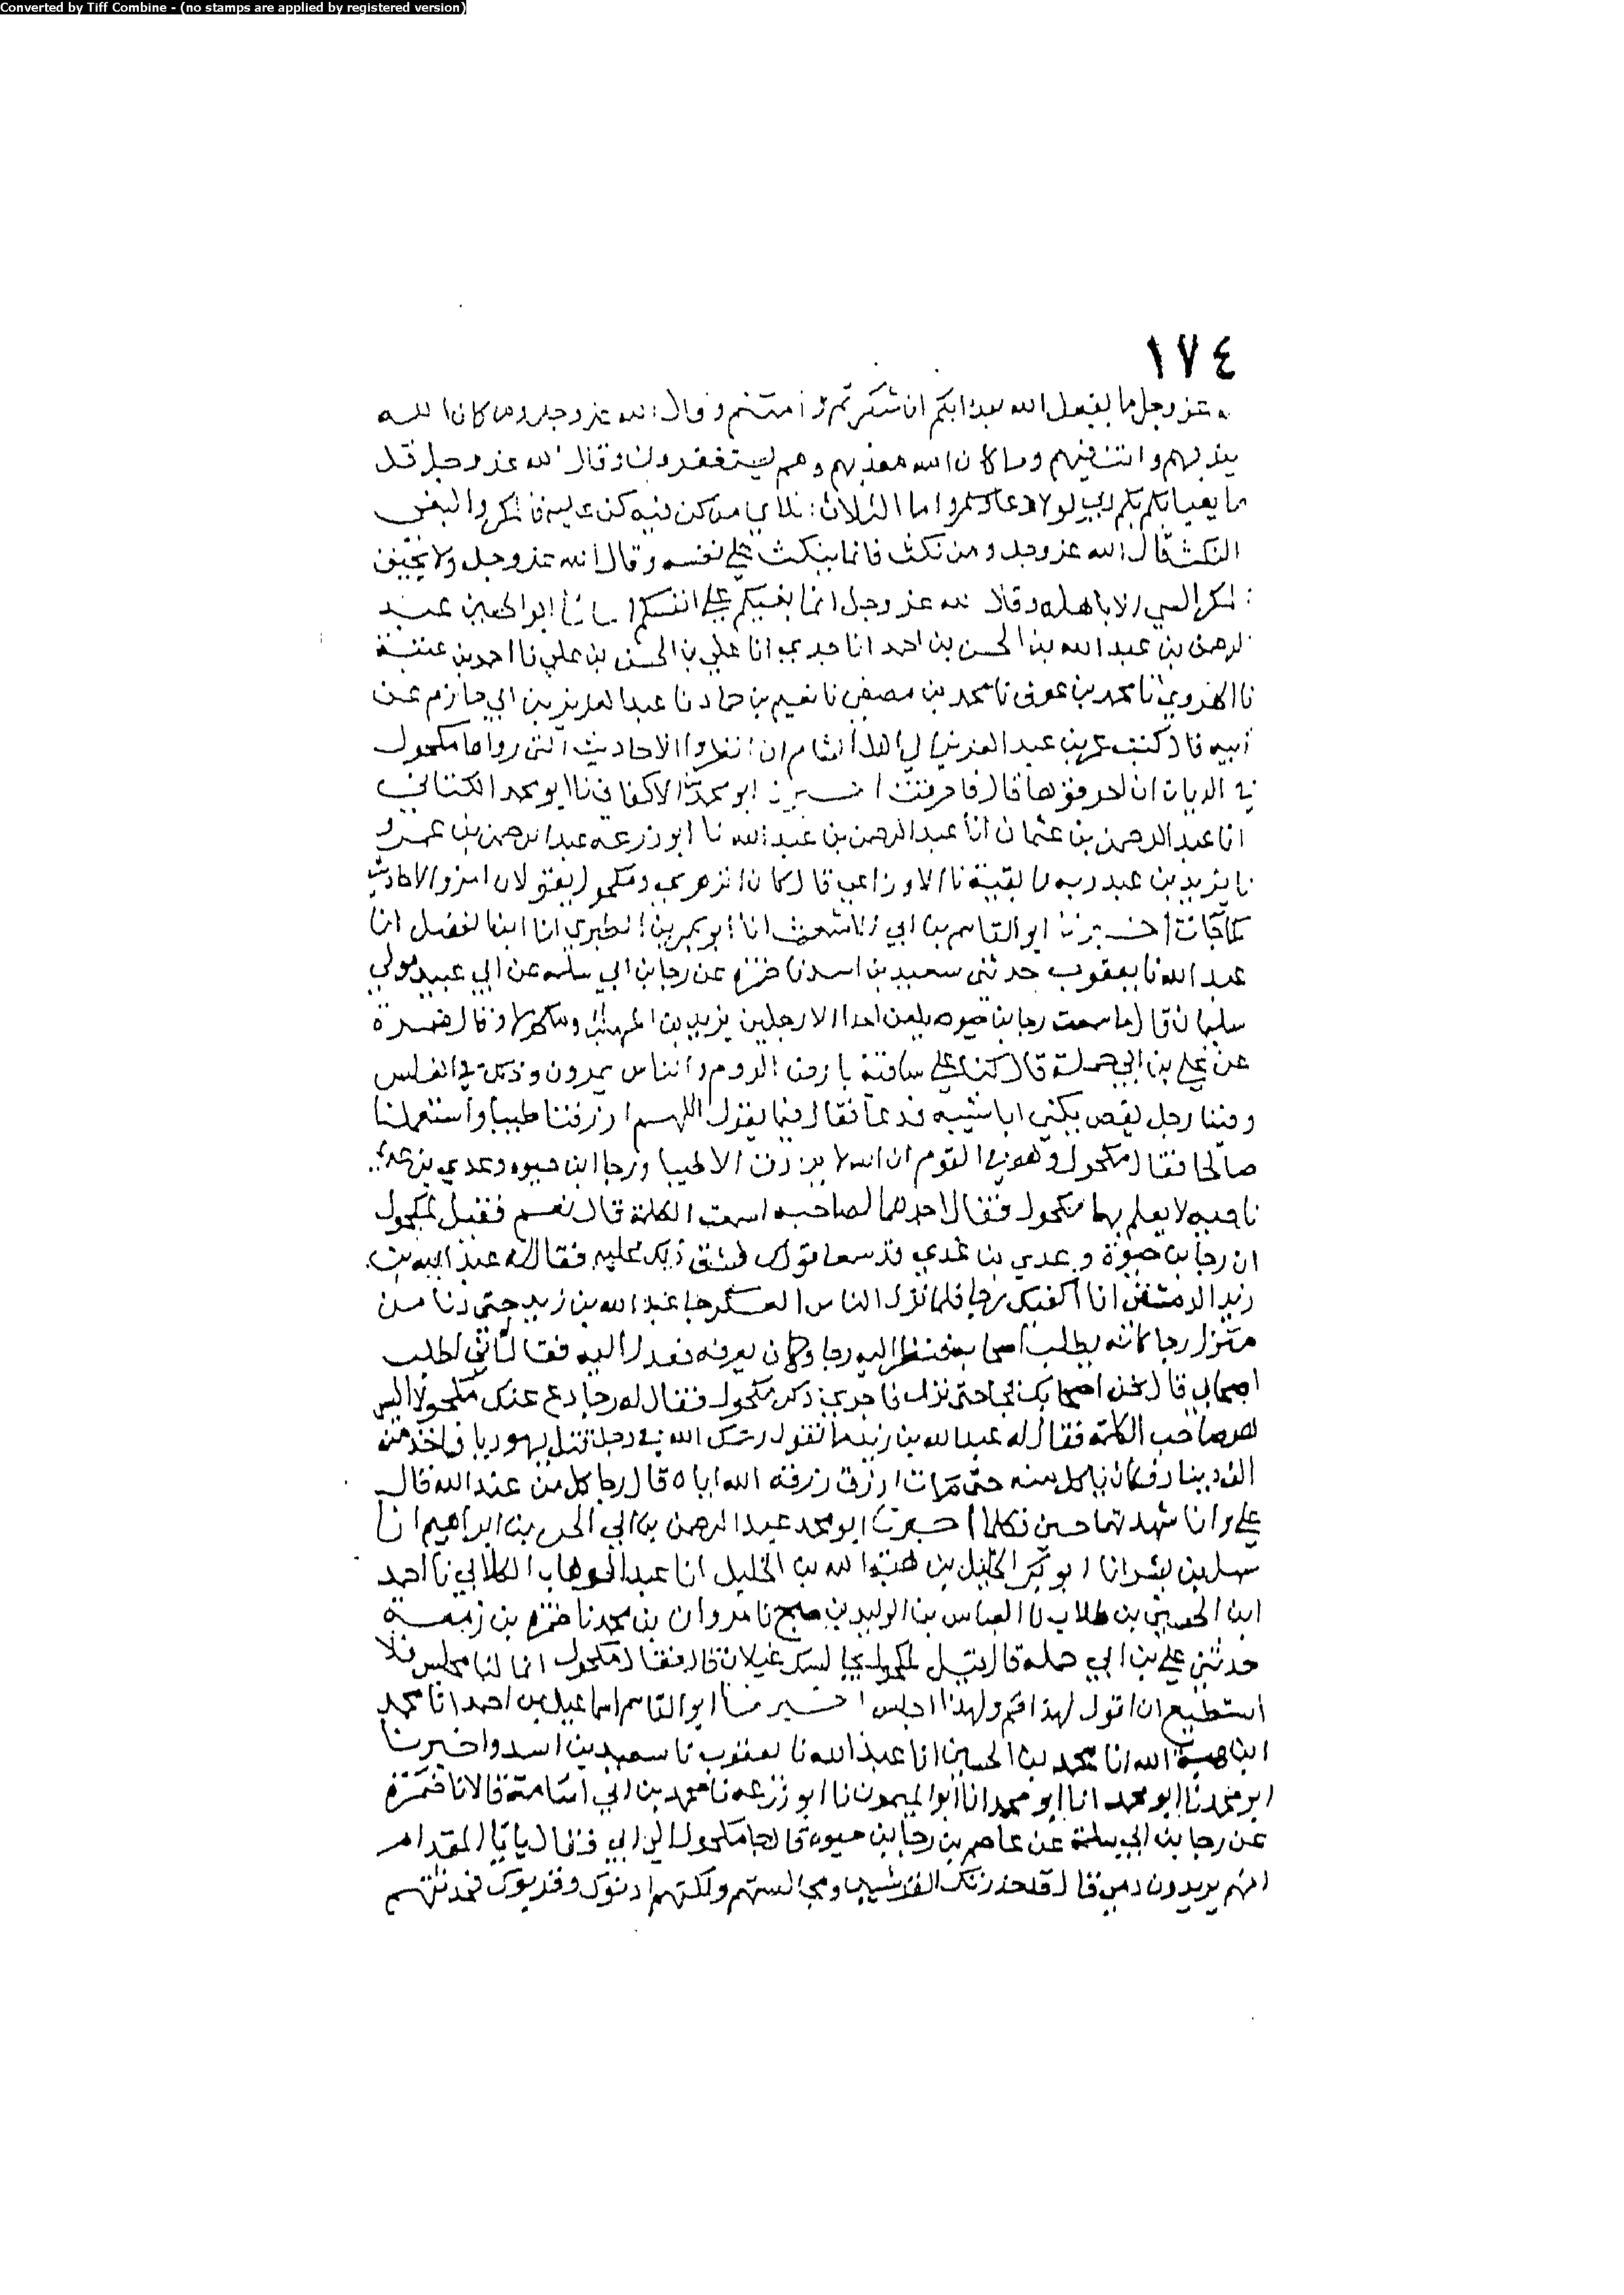 Converted by Tiff Combine - (no stamps are applied by registered version)
١٧٤
عز وجل ما يفعل الله بعذابكم ان شكرتم وامنتم وقال الله عز وجل وما كان الله
يعذبهم وانت فيهم وما كان الله معذبهم وهم يستغفرون وقال الله عز وجل قل
ما يعبا بكم ربي لولا دعاوكم واما الثلاث اللاي من كن فيه كن عليه فالمكر والبغي
النكث قال الله عز وجل ومن نكث فانما ينكث على نفسه وقال الله عز وجل ولا يحيق
المكر السي الا باهله وقال الله عز وجل انما بغيكم على انفسكم انبانا ابو الحسين عبد
الرحمن بن عبد الله بن الحسن بن احمد انا جدي انا علي بن الحسن بن علي نا احمد بن عتبة
نا الهروي نا محمد بن عوف نا محمد بن مصفى نا نعيم بن حماد نا عبد العزيز بن ابي حازم عن
ابيه قال كتب عمر بن عبد العزيز الى اهل الشام ان انظروا الاحاديث التي رواها مكحول
في الديات ان احرقوها قال فاحرقت اخبرنا ابو محمد الاكفاني نا ابو محمد الكتاني
انا عبد الرحمن بن عثمان انا عبد الرحمن بن عبد الله نا ابو زرعه عبد الرحمن بن عمرو
نا يزيد بن عبد ربه نا بقية نا الاوزاعي قال كان الزهري ومكحول يقولان امروا الاحاديث
كما جات اخبرنا ابو القاسم بن ابي الاشعث انا ابو بكر بن الطبري انا ابن الفضل انا
عبد الله نا يعقوب حدثني سعيد بن اسد نا ضمره عن رجا بن ابي سلمه عن ابي عبيد مولى
سليمان قال ما سمعت رجا بن حيوه يلعن احدا الا رجلين يزيد بن المهلب ومكحولا وقال ضمرة
عن علي بن ابي حملة قال كنا على ساقية بارض الروم والناس يمرون وذلك في الغلس
وفينا رجل يقص يكنى ابا شيبه فدعا فقال فيما يقول اللهم ارزقنا طيبا واستعملنا
صالحا فقال مكحول وهو في القوم ان الله لا يرزق الا طيبا ورجا ابن حيوه وعدي بن عدي
ناحيه لا يعلم بهما مكحول فقال احدهما لصاحبه اسمعت الكلمة قال نعم فقيل لمكحول
ان رجا بن حيوة وعدي بن عدي قد سمعا قولك فشق ذلك عليه فقال له عبد الله بن
زيد الدمشقي انا اكفيك رجا فلما نزل الناس العسكر جا عبد الله بن زيد حتى دنا من
منزل رجا كانه يطلب اصحابه فنظر اليه رجا وكان يعرفه فعدل اليه فقال له اني اطلب
اصحابي قال نحن اصحابك فجا حتى نزل فاجري ذكر مكحول فقال له رجا دع عنك مكحولا اليس
هو صاحب الكلمة فقال له عبد الله بن زيد ما تقول رحمك الله في رجل قتل يهوديا فاخذ منه
الف دينار فكان ياكل منه حتى مات ارزق رزقه الله اياه قال رجا كل من عند الله قال
علي وانا شهدتهما حين تكلما اخبرنا ابو محمد عبد الرحمن بن ابي الحسن بن ابراهيم انا
سهل بن بشر انا ابو بكر الخليل بن هبة الله بن الخليل انا عبد الوهاب الكلابي نا احمد
ابن الحسين بن طلاب نا العباس بن الوليد بن صبح نا مروان بن محمد نا ضمره بن ربيعة
حدثني علي بن ابي حمله قال قيل لمكحول غيلان قال فقال مكحول انما لنا مجلس فلا
استطيع ان اقول لهذا قم ولهذا اجلس اخبرنا ابو القاسم اسماعيل بن احمد انا محمد
ابن هبة الله انا محمد بن الحسين انا عبد الله نا يعقوب نا سعيد بن اسد واخبرنا
ابو محمد نا ابو محمد انا ابو محمد انا ابو الميمون نا ابو زرعه نا محمد بن ابي اسامة قالا نا ضمرة
عن رجا بن ابي سلمة عن عاصم بن رجا بن حيوه قال جا مكحول الى ابي فقال يا ابا المقدام
انهم يريدون دمي قال قد حذرتك القرشيين ومجالستهم ولكنهم ادنوك وقربوك فحدثتهم